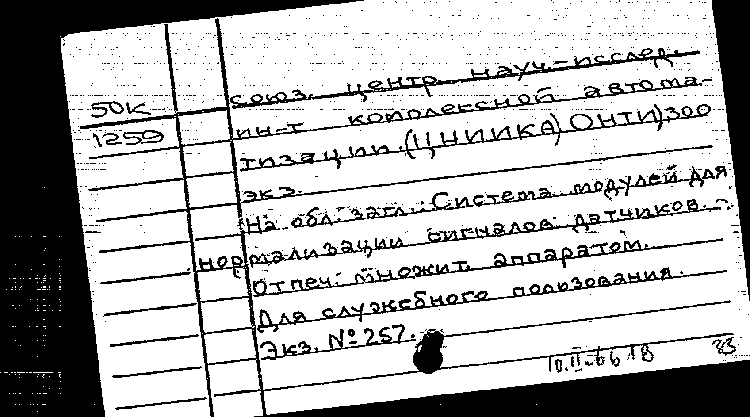 50К
1259
союз. центр. науч-исслед.
ин-т комплексной автома-
тизации.(ЦНИИКА) ОНТИ,300
экз.
На обл. загл.: Система модулей для
нормализации сигналов датчиков.
Отпеч. множит. аппаратом.
Для служебного пользования.
Экз. №257.
10.II-66 18 33